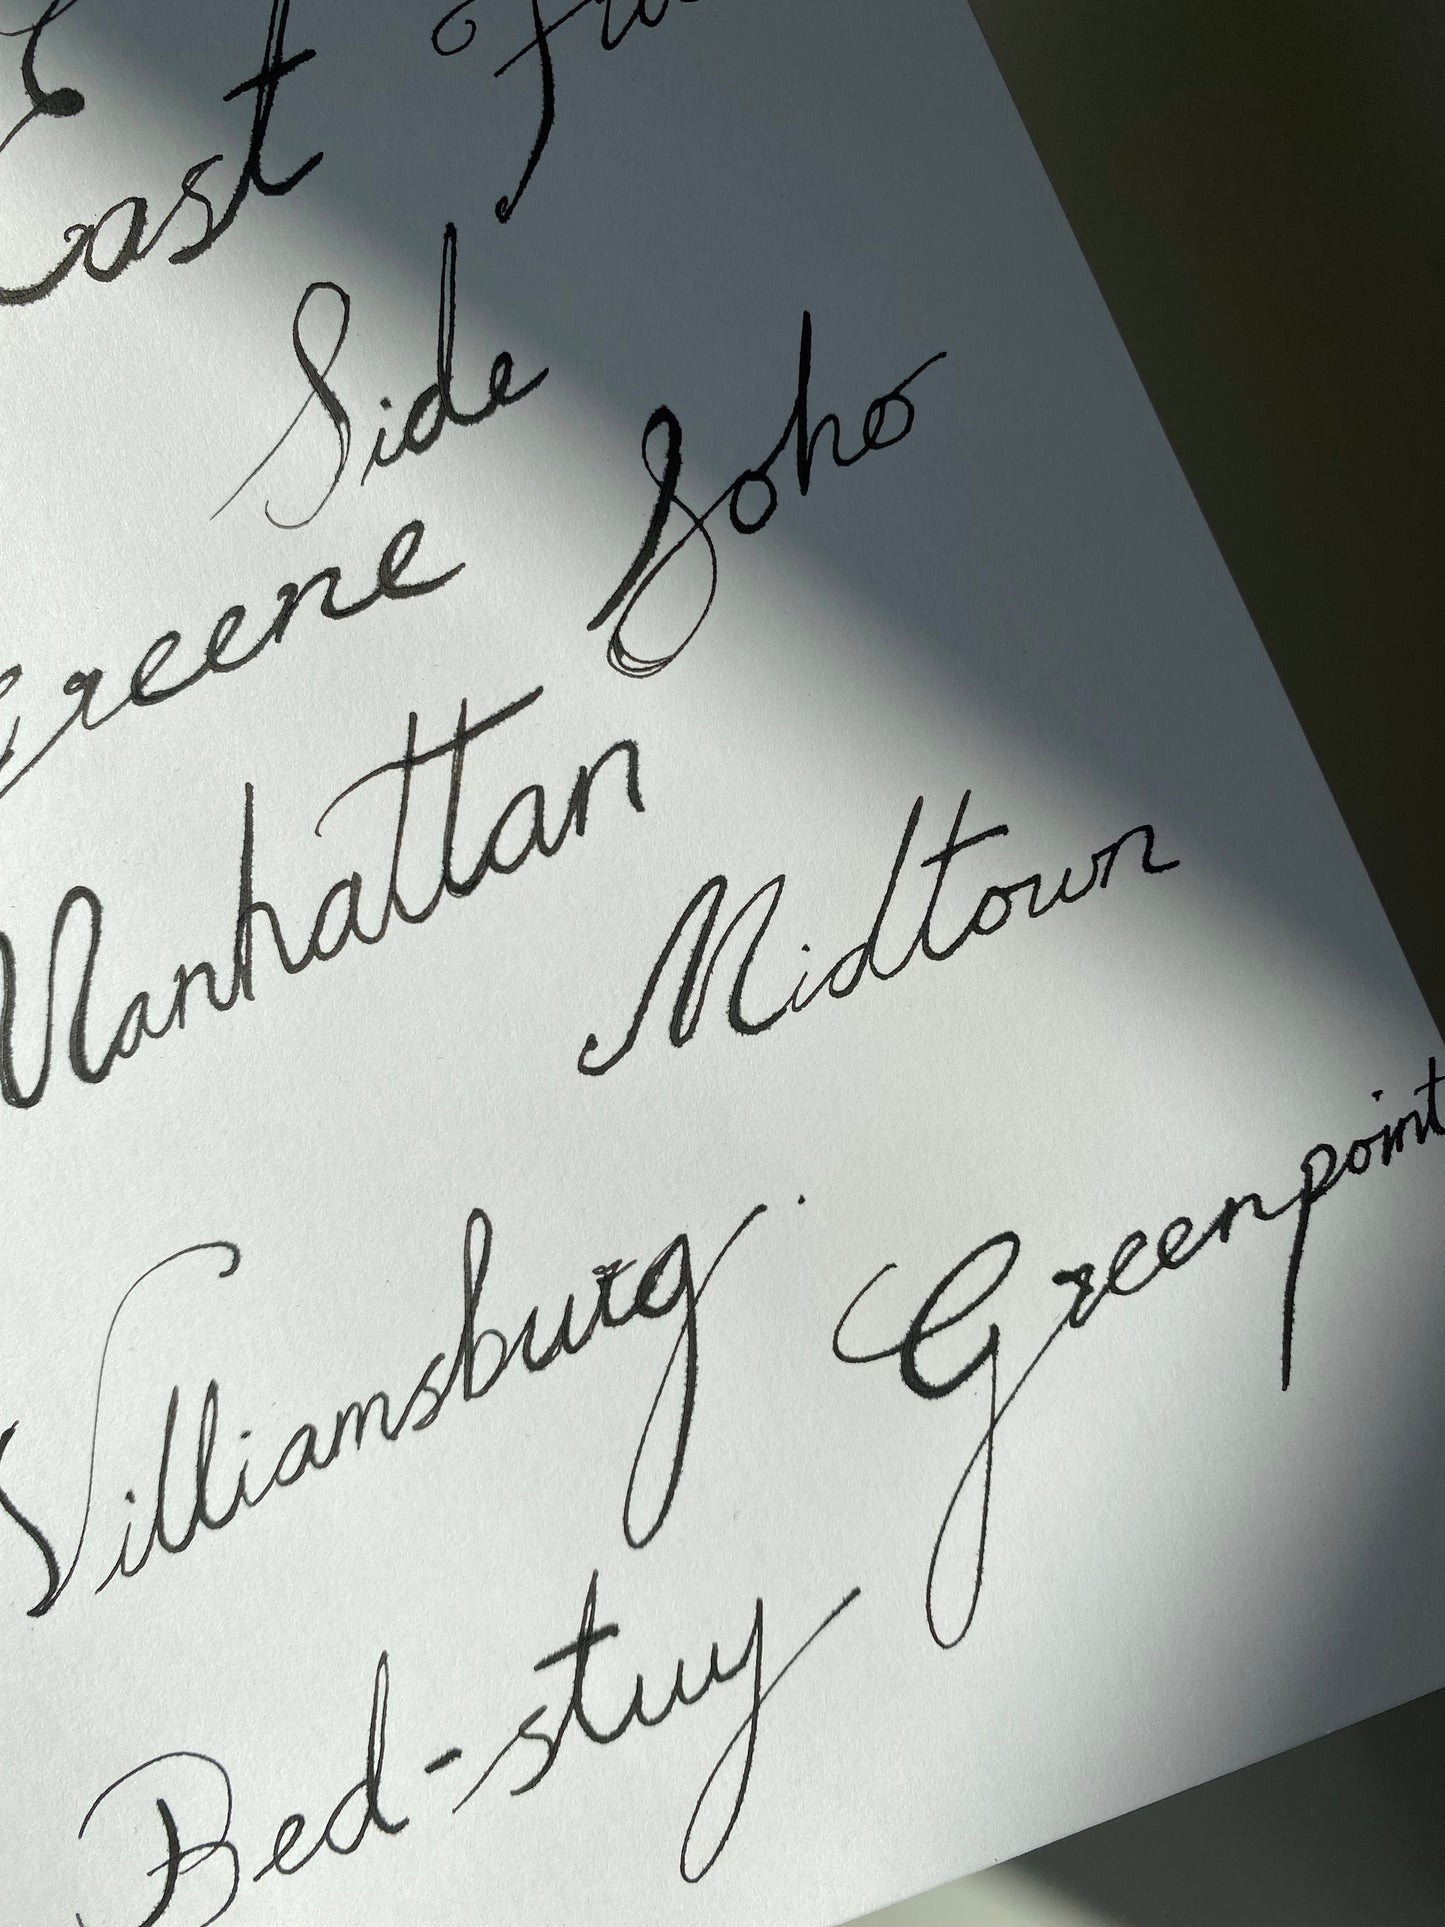 East
Side
Greene Soho
Manhattan
Midtown
Williamsburg.
Greenpoint
Bed-stuy